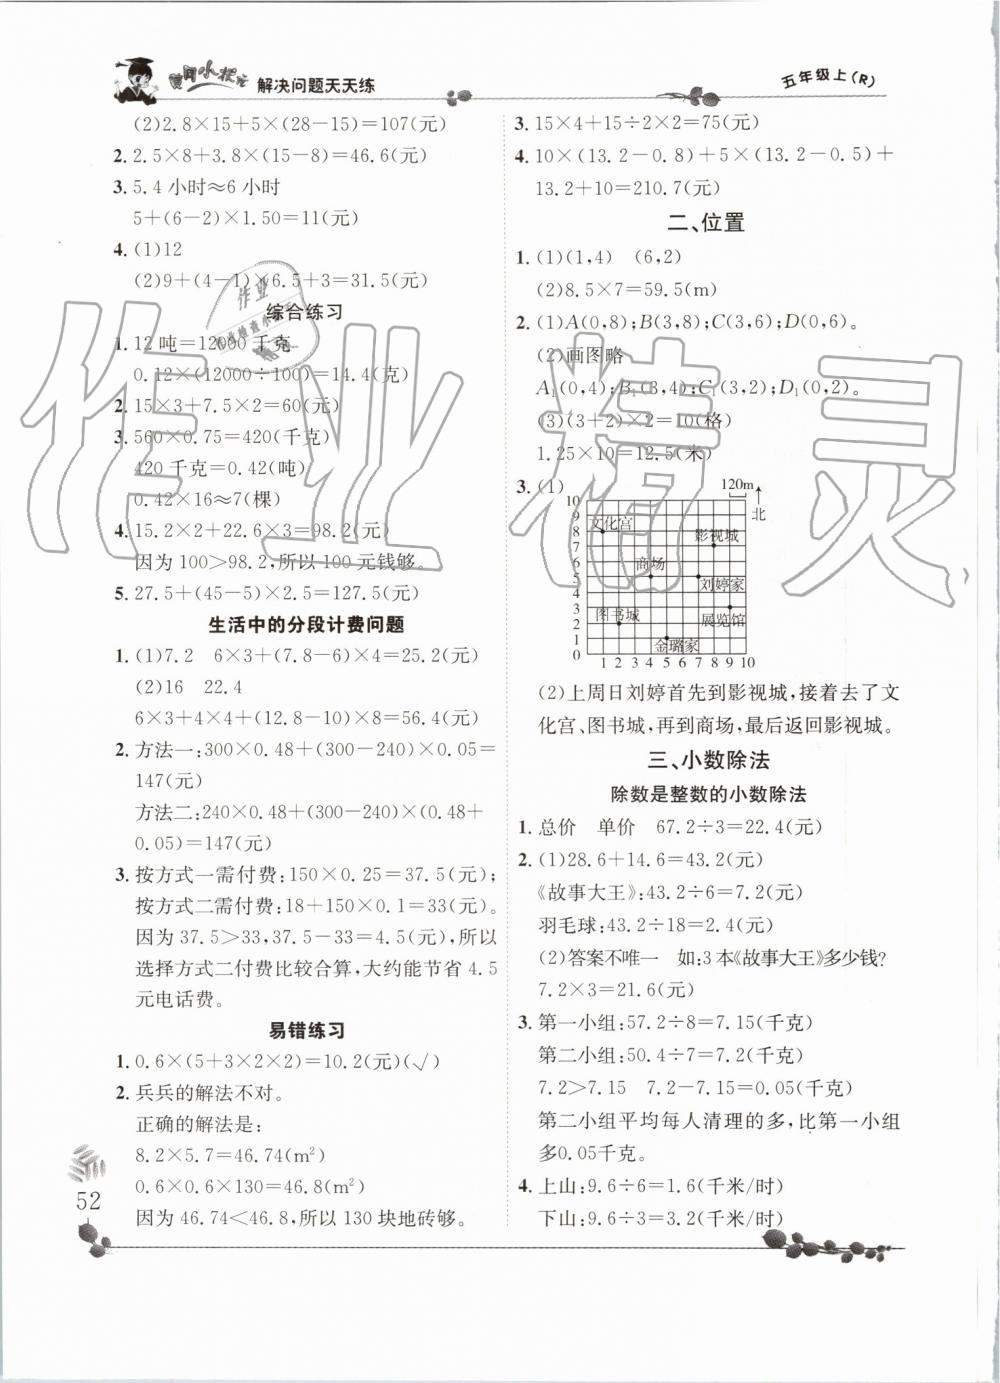 黄冈小状元 解决问题天天练
五年级上(R)
(2)2.8×15+5×(28-15)=107(元)
2. 2.5×8+3.8×(15-8)=46.6(元)
3. 5.4小时≈6小时
5+(6-2)×1.50=11(元)
4. (1)12
(2)9+(4-1)×6.5+3=31.5(元)
综合练习
1. 12吨=12000千克
0.12×(12000÷100)=14.4(元)
2. 15×3+7.5×2=60(元)
3. 560×0.75=420(千克)
420千克=0.42(吨)
0.42×16≈7(棵)
4. 15.2×2+22.6×3=98.2(元)
因为100>98.2,所以100元钱够。
5. 27.5+(45-5)×2.5=127.5(元)
生活中的分段计费问题
1. (1)7.2 6×3+(7.8-6)×4=25.2(元)
(2)16 22.4
6×3+4×4+(12.8-10)×8=56.4(元)
2. 方法一:300×0.48+(300-240)×0.05=
147(元)
方法二:240×0.48+(300-240)×(0.48+
0.05)=147(元)
3. 按方式一需付费:150×0.25=37.5(元);
按方式二需付费:18+150×0.1=33(元)。
因为37.5>33,37.5-33=4.5(元),所以
选择方式二付费比较合算,大约能节省4.5
元电话费。
易错练习
1. 0.6×(5+3×2×2)=10.2(元)(√)
2. 兵兵的解法不对。
正确的解法是:
8.2×5.7=46.74(m²)
0.6×0.6×130=46.8(m²)
因为46.74<46.8,所以130块地砖够。
52
3. 15×4+15÷2×2=75(元)
4. 10×(13.2-0.8)+5×(13.2-0.5)+
13.2+10=210.7(元)
二、位置
1. (1)(1,4) (6,2)
(2)8.5×7=59.5(m)
2. (1)A(0,8);B(3,8);C(3,6);D(0,6)。
(2)画图略
A₁(0,4);B₁(3,4);C₁(3,2);D₁(0,2)。
(3)(3+2)×2=10(格)
1.25×10=12.5(米)
3. (1)
120m
北
10
9
8
7
6
5
4
3
2
1
0
文化宫
影视城
商场
刘婷家
图书城
展览馆
金璐家
1 2 3 4 5 6 7 8 9 10
(2)上周日刘婷首先到影视城,接着去了文
化宫、图书城,再到商场,最后返回影视城。
三、小数除法
除数是整数的小数除法
1. 总价 单价 67.2÷3=22.4(元)
2. (1)28.6+14.6=43.2(元)
《故事大王》:43.2÷6=7.2(元)
羽毛球:43.2÷18=2.4(元)
(2)答案不唯一 如:3本《故事大王》多少钱?
7.2×3=21.6(元)
3. 第一小组:57.2÷8=7.15(千克)
第二小组:50.4÷7=7.2(千克)
7.2>7.15 7.2-7.15=0.05(千克)
第二小组平均每人清理的多,比第一小组
多0.05千克。
4. 上山:9.6÷6=1.6(千米/时)
下山:9.6÷3=3.2(千米/时)
作业精灵
作业